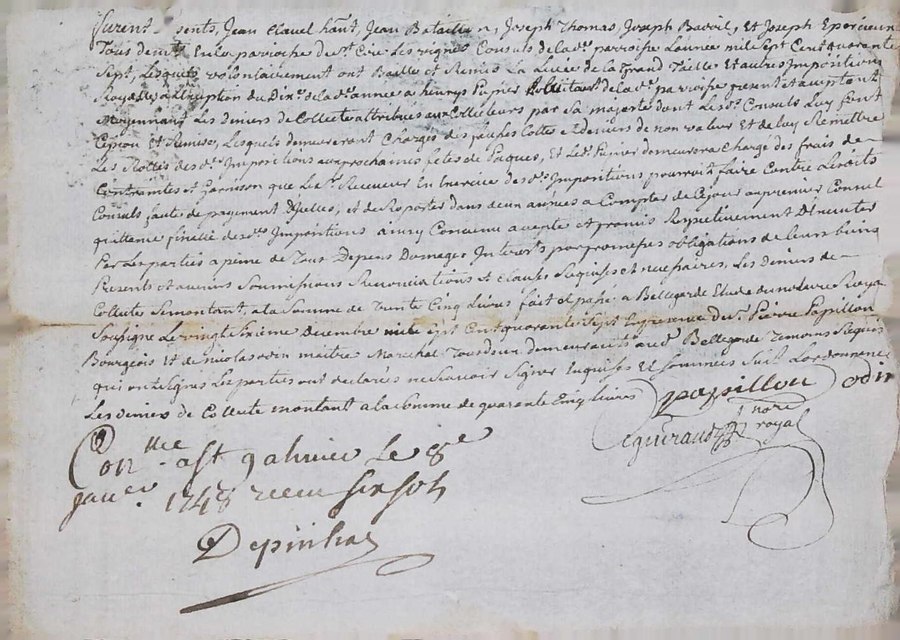 furent sents, Jean Clavel hant, Jean Batailler, Joseph Thomas, Joseph Bavoil, Et Joseph Eperieux
Tous demts En la parroisse de st Cire les vignes Consuls de lade parroisse Lannée mil Sept Cent quarante
Sept, Lesquels volontairement ont Bailles et Remis La Livée de la Grand Tailles Et autres Impositions
Royalles du Dixe de lade année a henrys Punier Collecteur de lade parroisse present et aceptant
Moyennant Les deniers de Collecte attribués aux Collecteurs par Sa majesté dont Les ds Consuls Luy font
Cession et Remise, Lesquels demeureront Charges des fausses Cottes et deniers de non valeur Et de luy Remettre
Les Rolles des des Impositions aux prochaines fetes de Paques, Et Led. Punier demeurera Charge des frais de
Contraintes et Garnison que Le Sr Receveur En Exercice des des Impositions pourroit faire Contre Lesdits
Consuls faute de payement Dicelles, et de Raporter dans deux années a Compter de Cejour au premier Consul
quittance finalle des des Impositions ainsy Convenu acepté et promis Respectivement Dexecuter
Par Les parties a peine de Tous Depens Domages Interets par promesses obligations de Leurs biens
Presents et avenirs Soumissions Renonciations et clauses Requises et necessaires, Les deniers de
Collecte Se montant, a la Somme de Trente Cinq Livres fait et passé a Bellegarde Etude du notaire Royal
Soussigné Le vingt sixieme Decembre mil sept Cent quarante Sept En presence de sr Pierre Papillon
Bourgeois Et de nicolas odin maitre Marechal Tous deux demeurants aud Bellegarde Temoins Requis
qui ont Signés Les parties ont declarées ne Scavoir Signer Enquises Et Sommées Suit Lordonnance
Les deniers de Collecte montant a la Somme de quarante Cinq Livres papillon odin
Legueraud nore royal
Conlle a St galmier le 8e
janer. 1748 receu six sols
Depinhac